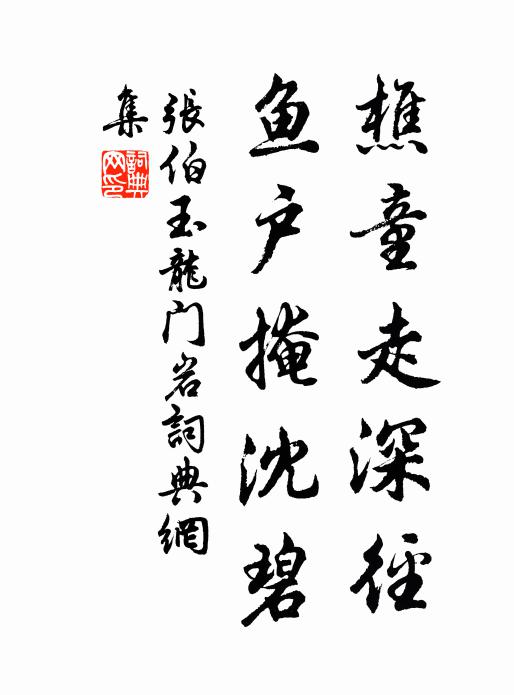 樵童走深徑
鱼户掩沈碧
張伯玉龍门岩詞典網
集
詞典
网印